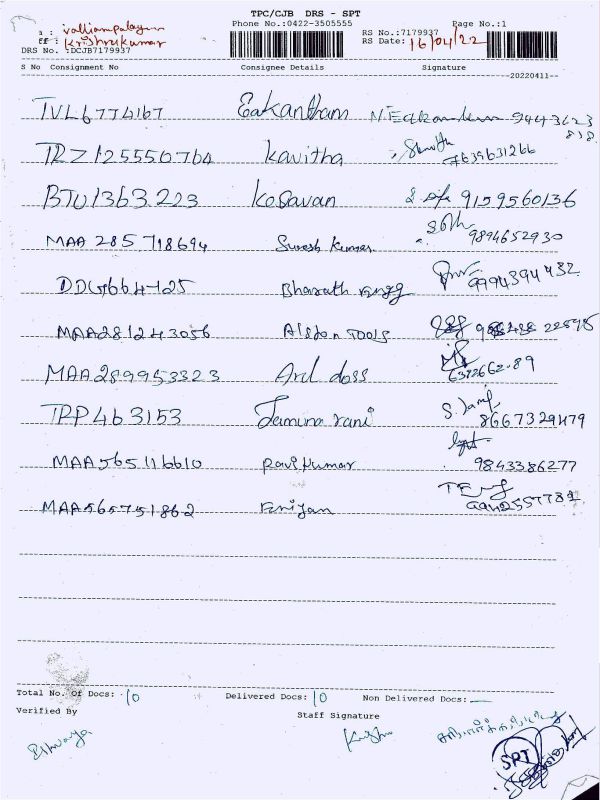 TPC/CJB DRS - SPT
Phone No.:0422-3505555 Page No.:1
: Valliampalayam RS No.:7179937
ff : Krishnakumar RS Date: 16/04/22
DRS No. :DCJB7179937
S No Consignment No Consignee Details Signature
--20220411--
TVL6774167 Eakantham 9443623
838
TRZ125550764 Kavitha 7639631266
BTU1363223 Kesavan 9159560136
MAA 285718694 Suresh Kumar 9894652930
Bharath 9994394432
MAA281243056 Alston TOOLS
MAA289953323 Arul doss 637266289
TPP463153 Jamuna rani 8667329479
MAA565116610 Ravi kumar 9843386277
MAA565751862 Eniyan
Total No. Of Docs: 10 Delivered Docs: 10 Non Delivered Docs: —
Verified By Staff Signature
SPT